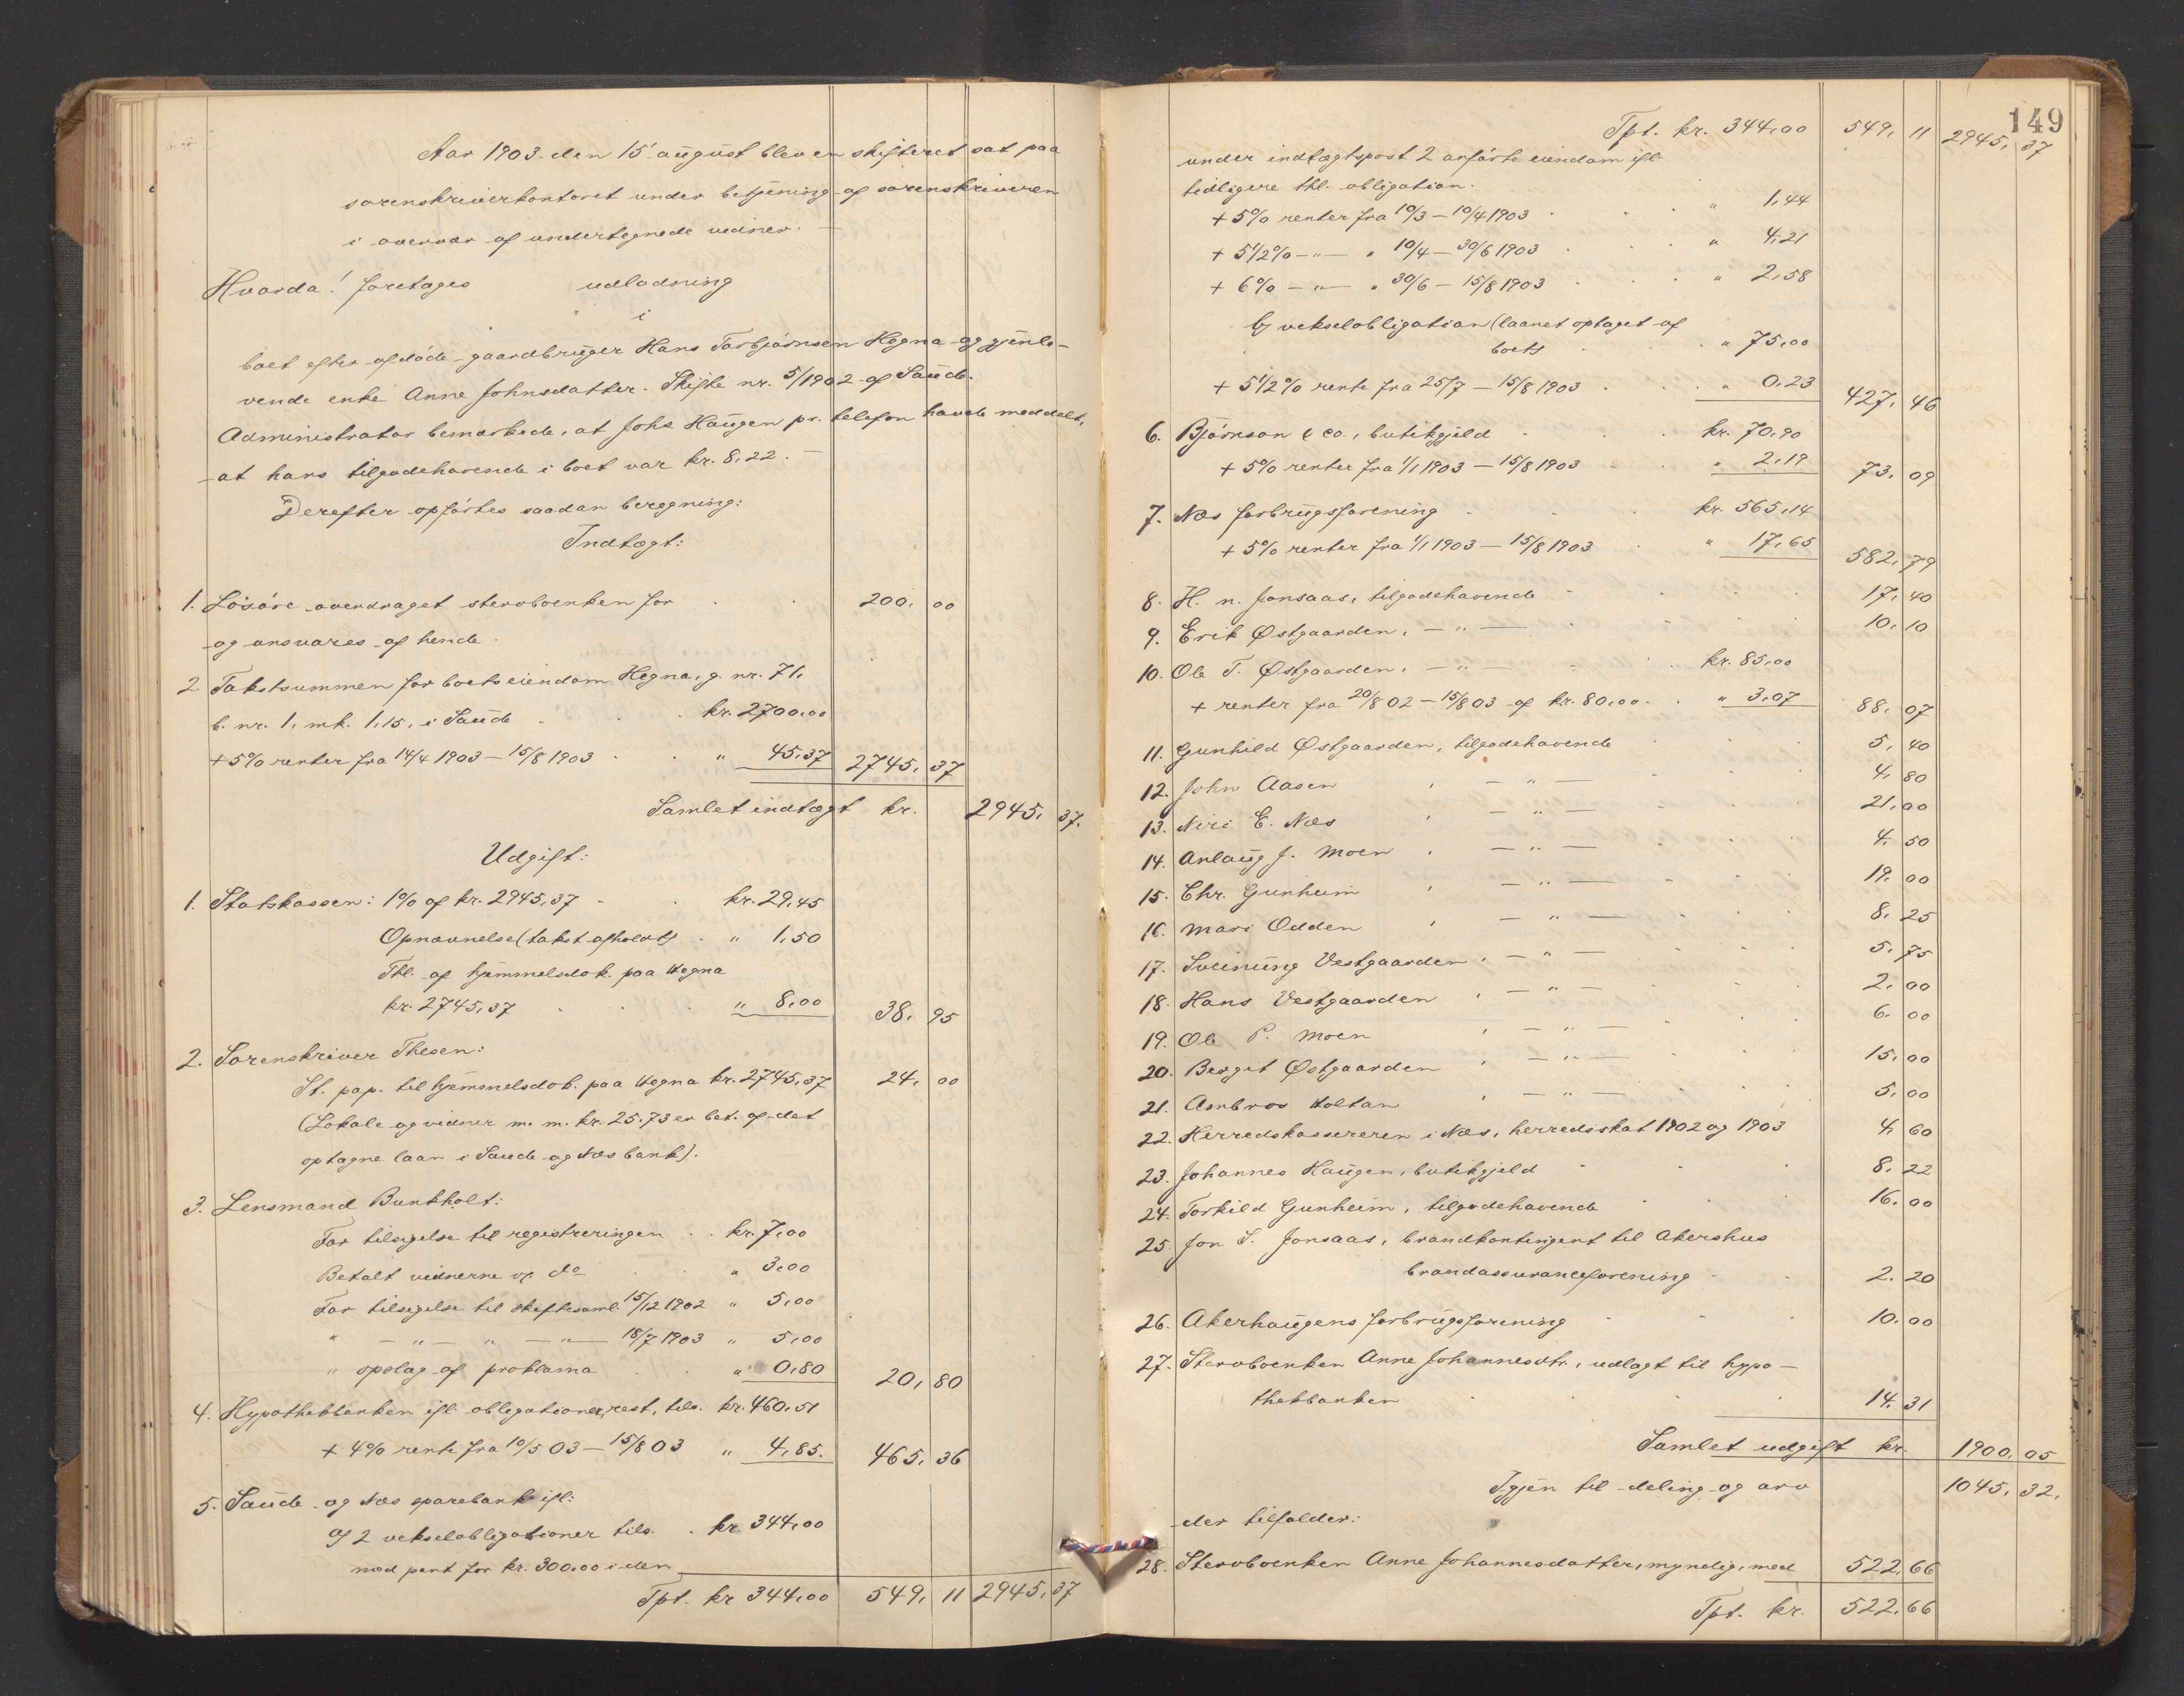 Aar 1903 den 15' august blev en skifteret sat paa
sorenskriverkontoret under betjening af sorenskriveren
i overvær af undertegnede vidner. —
Hvorda! foretages udlodning
i
boet efter afdøde gaardbruger Hans Torbjørnsen Hegna og gjenle-
vende enke Anne Johnsdatter. Skifte nr. 5/1902 af Saude.
Administrator bemærkede, at Johs Haugen pr. telefon havde meddelt,
at hans tilgodehavende i boet var kr. 8,22. —
Derefter opførtes saadan beregning:
Indtægt:
1. Løsøre overdraget stervboenken for . . 200, 00
og ansvares af hende.
2. Takstsummen for boets eiendom Hegna, g. nr. 71,
b. nr. 1, mk. 1,15, i Saude . . kr. 2700,00
+ 5% renter fra 14/4 1903 — 15/8 1903 . . " 45,37 2745, 37
Samlet indtægt kr. 2945, 37.
Udgift:
1. Statskassen: 1% af kr. 2945,37 . . kr. 29,45
Opnævnelse (takst afholdt) . " 1,50
Thl. af hjemmelsdok. paa Hegna
kr. 2745,37 . . . " 8,00 38, 95
2. Sorenskriver Thesen:
St. pap. til hjemmelsdok. paa Hegna kr. 2745,37 24, 00
(Lokale og vidner m. m. kr. 25.73 er bet. af det
optagne laan i Saude og Næs bank).
3. Lensmand Bunkholt:
For tilsigelse til registreringen . . kr. 7,00
Betalt vidnerne v. do . . " 3,00
For tilsigelse til skiftesaml. 15/12 1902 " 5,00
" — " — " — " — 18/7 1903 " 5,00
" opslag af proklama . . " 0,80 20, 80
4. Hypothekbanken ifl. obligationer, rest, tils. kr. 460,51
+ 4% rente fra 10/5 03 — 15/8 03 " 4,85. 465, 36
5. Saude og Næs sparebank ifl:
a) 2 vekselobligationer tils. . kr 344,00
mod pant for kr. 300,00 i den
Tpt. kr 344,00 549, 11 2945, 37
149
Tpt. kr. 344,00 549, 11 2945, 37
under indtægtspost 2 anførte eiendom ifl.
tidligere thl. obligation.
+ 5% renter fra 10/3 — 10/4 1903 . . . " 1,44
+ 5 1/2% — " — " 10/4 — 30/6 1903 . . . " 4,21
+ 6% — " — " 30/6 — 15/8 1903 . . . " 2,58
b) vekselobligation (laanet optaget af
boet) . . " 75,00
+ 5 1/2% rente fra 25/7 — 15/8 1903 . . . " 0,23 427, 46
6. Bjørnson & co., butikgjeld . . kr. 70,90
+ 5% renter fra 1/1 1903 — 15/8 1903 . . " 2,19 73, 09
7. Næs forbrugsforening . . . kr. 565,14
+ 5% renter fra 1/1 1903 — 15/8 1903 . " 17,65 582, 79
8. H. n. Jonsaas, tilgodehavende . . . 17, 40
9. Erik Østgaarden, — " — . . . 10, 10
10. Ole T. Østgaarden, — " — . . kr. 85,00
+ renter fra 20/8 02 — 15/8 03 af kr. 80,00. . " 3,07 88, 07
11. Gunhild Østgaarden, tilgodehavende . . . 5, 40
12. John Aasen , — " — . . . 4, 80
13. Niri E. Næs , — " — . . . 21, 00
14. Anlaug J. Moen , — " — . . . 4, 50
15. Chr. Gunheim , — " — . . . 19, 00
16. Mari Odden , — " — . . . 8, 25
17. Sveinung Vestgaarden , — " — . . . 5, 75
18. Hans Vestgaarden , — " — . . . 2, 00
19. Ole P. Moen , — " — . . . 6, 00
20. Bergit Østgaarden , — " — . . . 15, 00
21. Ambros Holtan , — " — . . . 5, 00
22. Herredskassereren i Næs, herredsskat 1902 og 1903 4, 60
23. Johannes Haugen, butikgjeld . . . 8, 22
24. Torkild Gunheim, tilgodehavende . . . 16, 00
25. Jon S. Jonsaas, brandkontingent til Akershus
brandassuranceforening . . 2, 20
26. Akerhaugens forbrugsforening . . . 10, 00
27. Stervboenken Anne Johannesdtr., udlagt til hypo-
thekbanken . . . 14, 31
Samlet udgift kr. 1900, 05
Igjen til deling og arv 1045, 32.
der tilfalder:
28. Stervboenken Anne Johannesdatter, myndig, med 522, 66
Tpt. kr. 522, 66